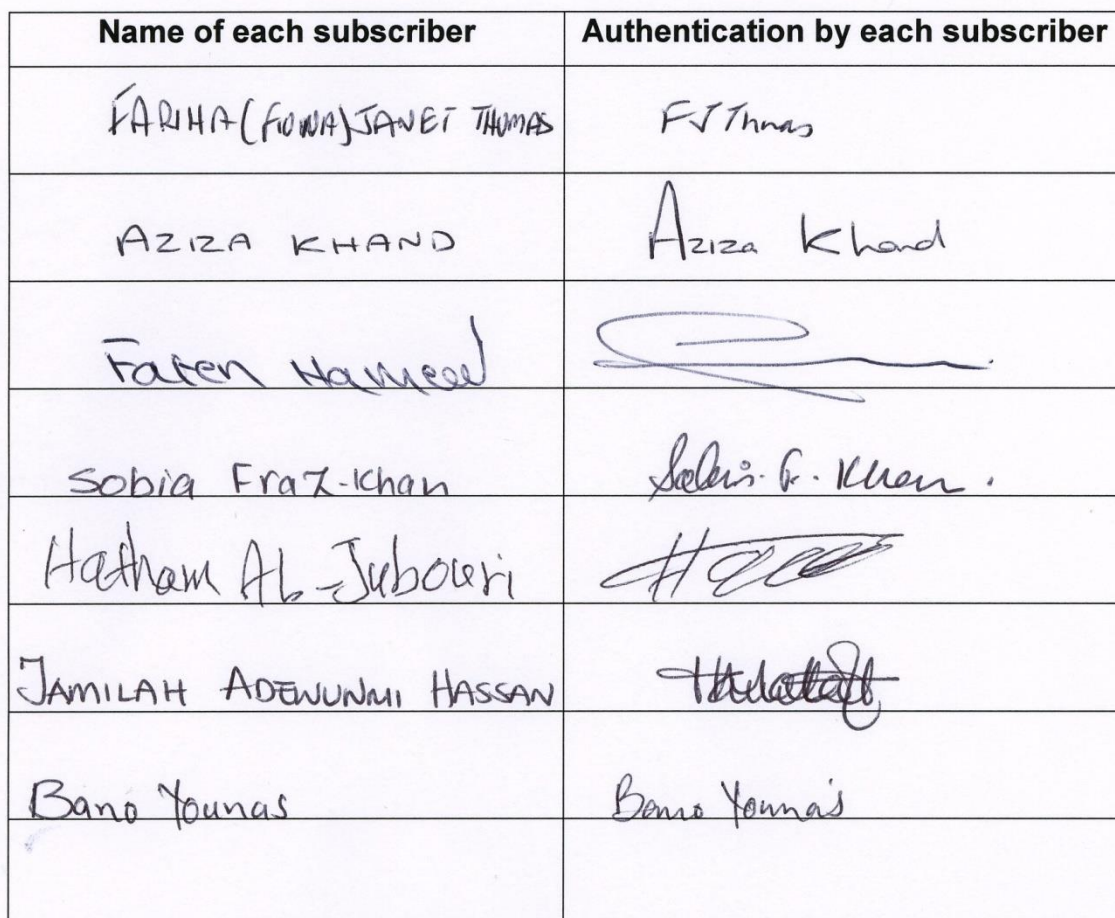 Name of each subscriber Authentication by each subscriber
FARIHA (FIONA) JANET THOMAS FJ Thomas
AZIZA KHAND Aziza Khand
Faten Hameed
Sobia Fraz-Khan Sobia. F. Khan.
Hatham AL-Jubouri
JAMILAH ADEWUNMI HASSAN
Bano Younas Bano Younas